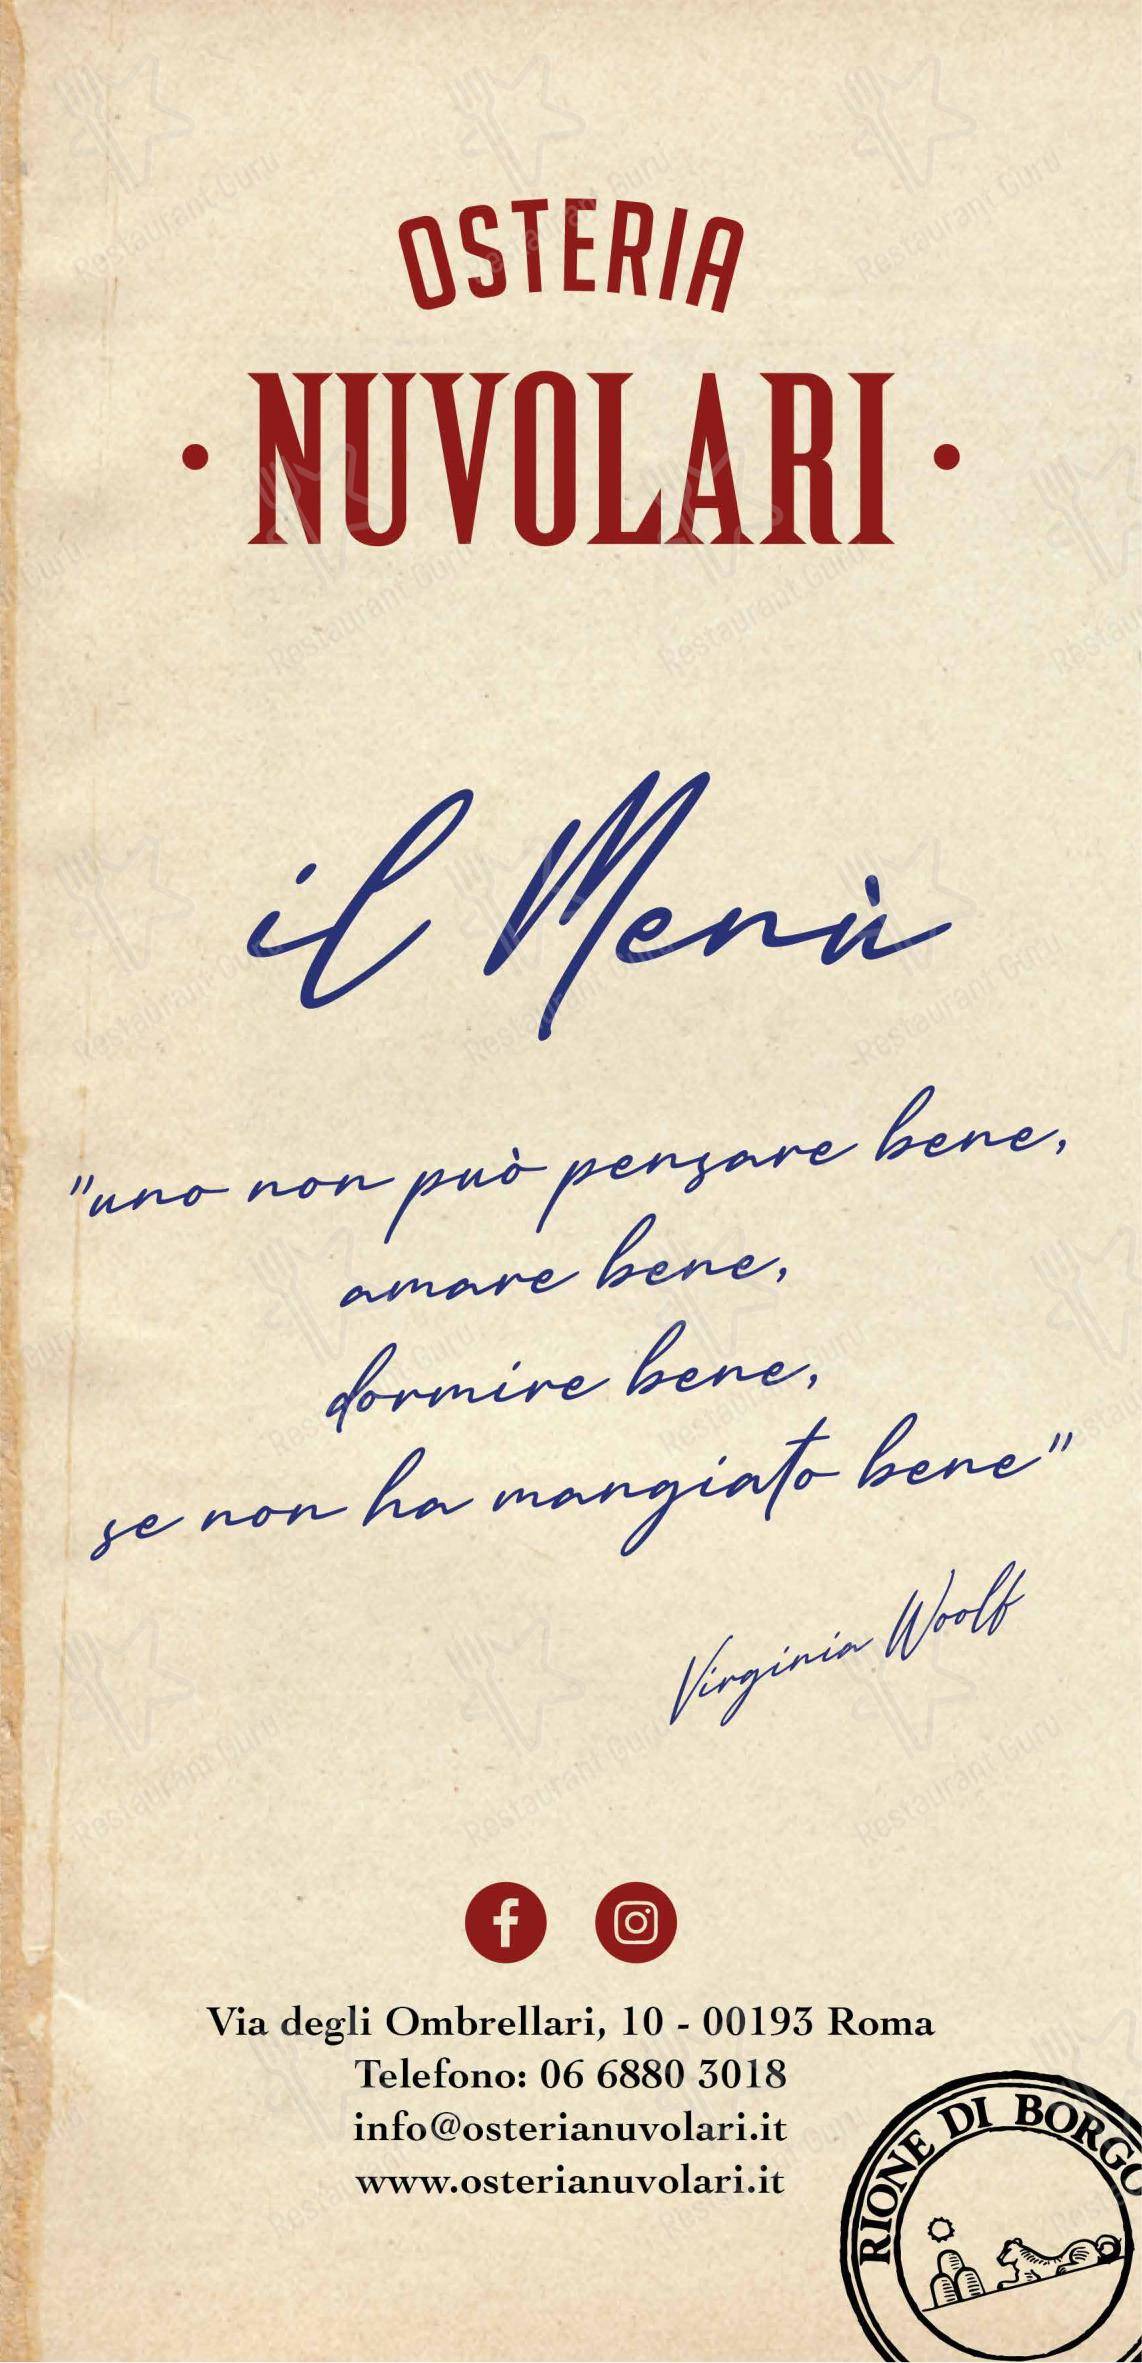 OSTERIA
· NUVOLARI ·
il Menù
"uno non può pensare bene,
amare bene,
dormire bene,
se non ha mangiato bene"
Virginia Woolf
Via degli Ombrellari, 10 - 00193 Roma
Telefono: 06 6880 3018
info@osterianuvolari.it
www.osterianuvolari.it
RIONE DI BORGO
Restaurant Guru